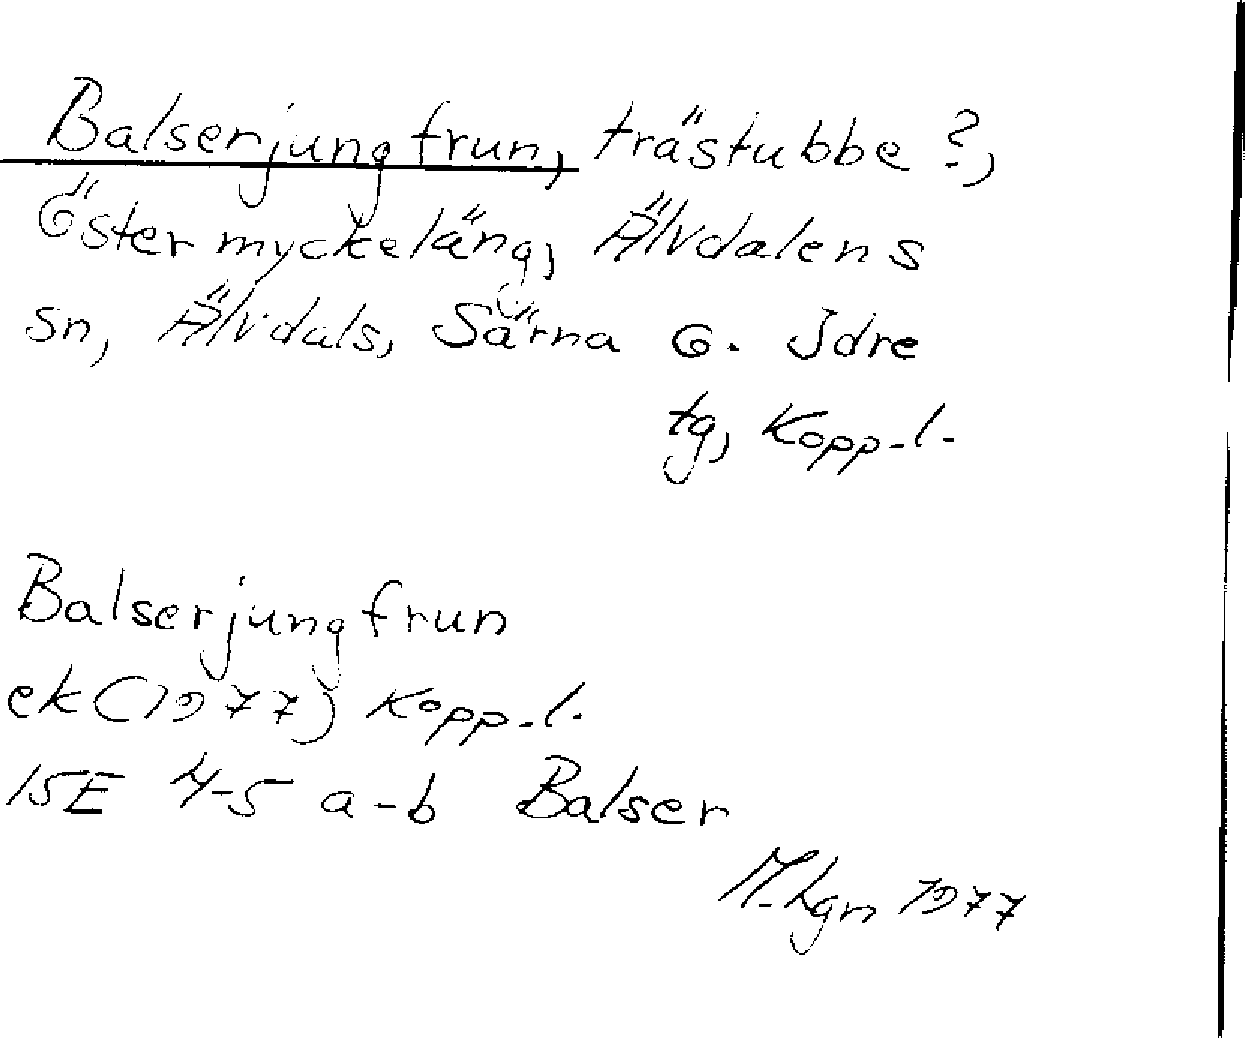 Balserjungfrun, trästubbe?,
Östermyckeläng, Älvdalens
sn, Älvdals, Särna o. Idre
tg, Kopp.l.
Balserjungfrun
ek (1977) Kopp.l.
15E 4-5 a-b Balser
M.Lgn 1977